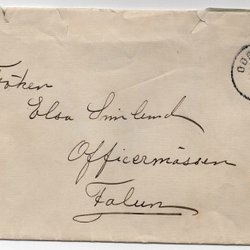 Fröken
Elsa Smilund
Officermässen
Falun